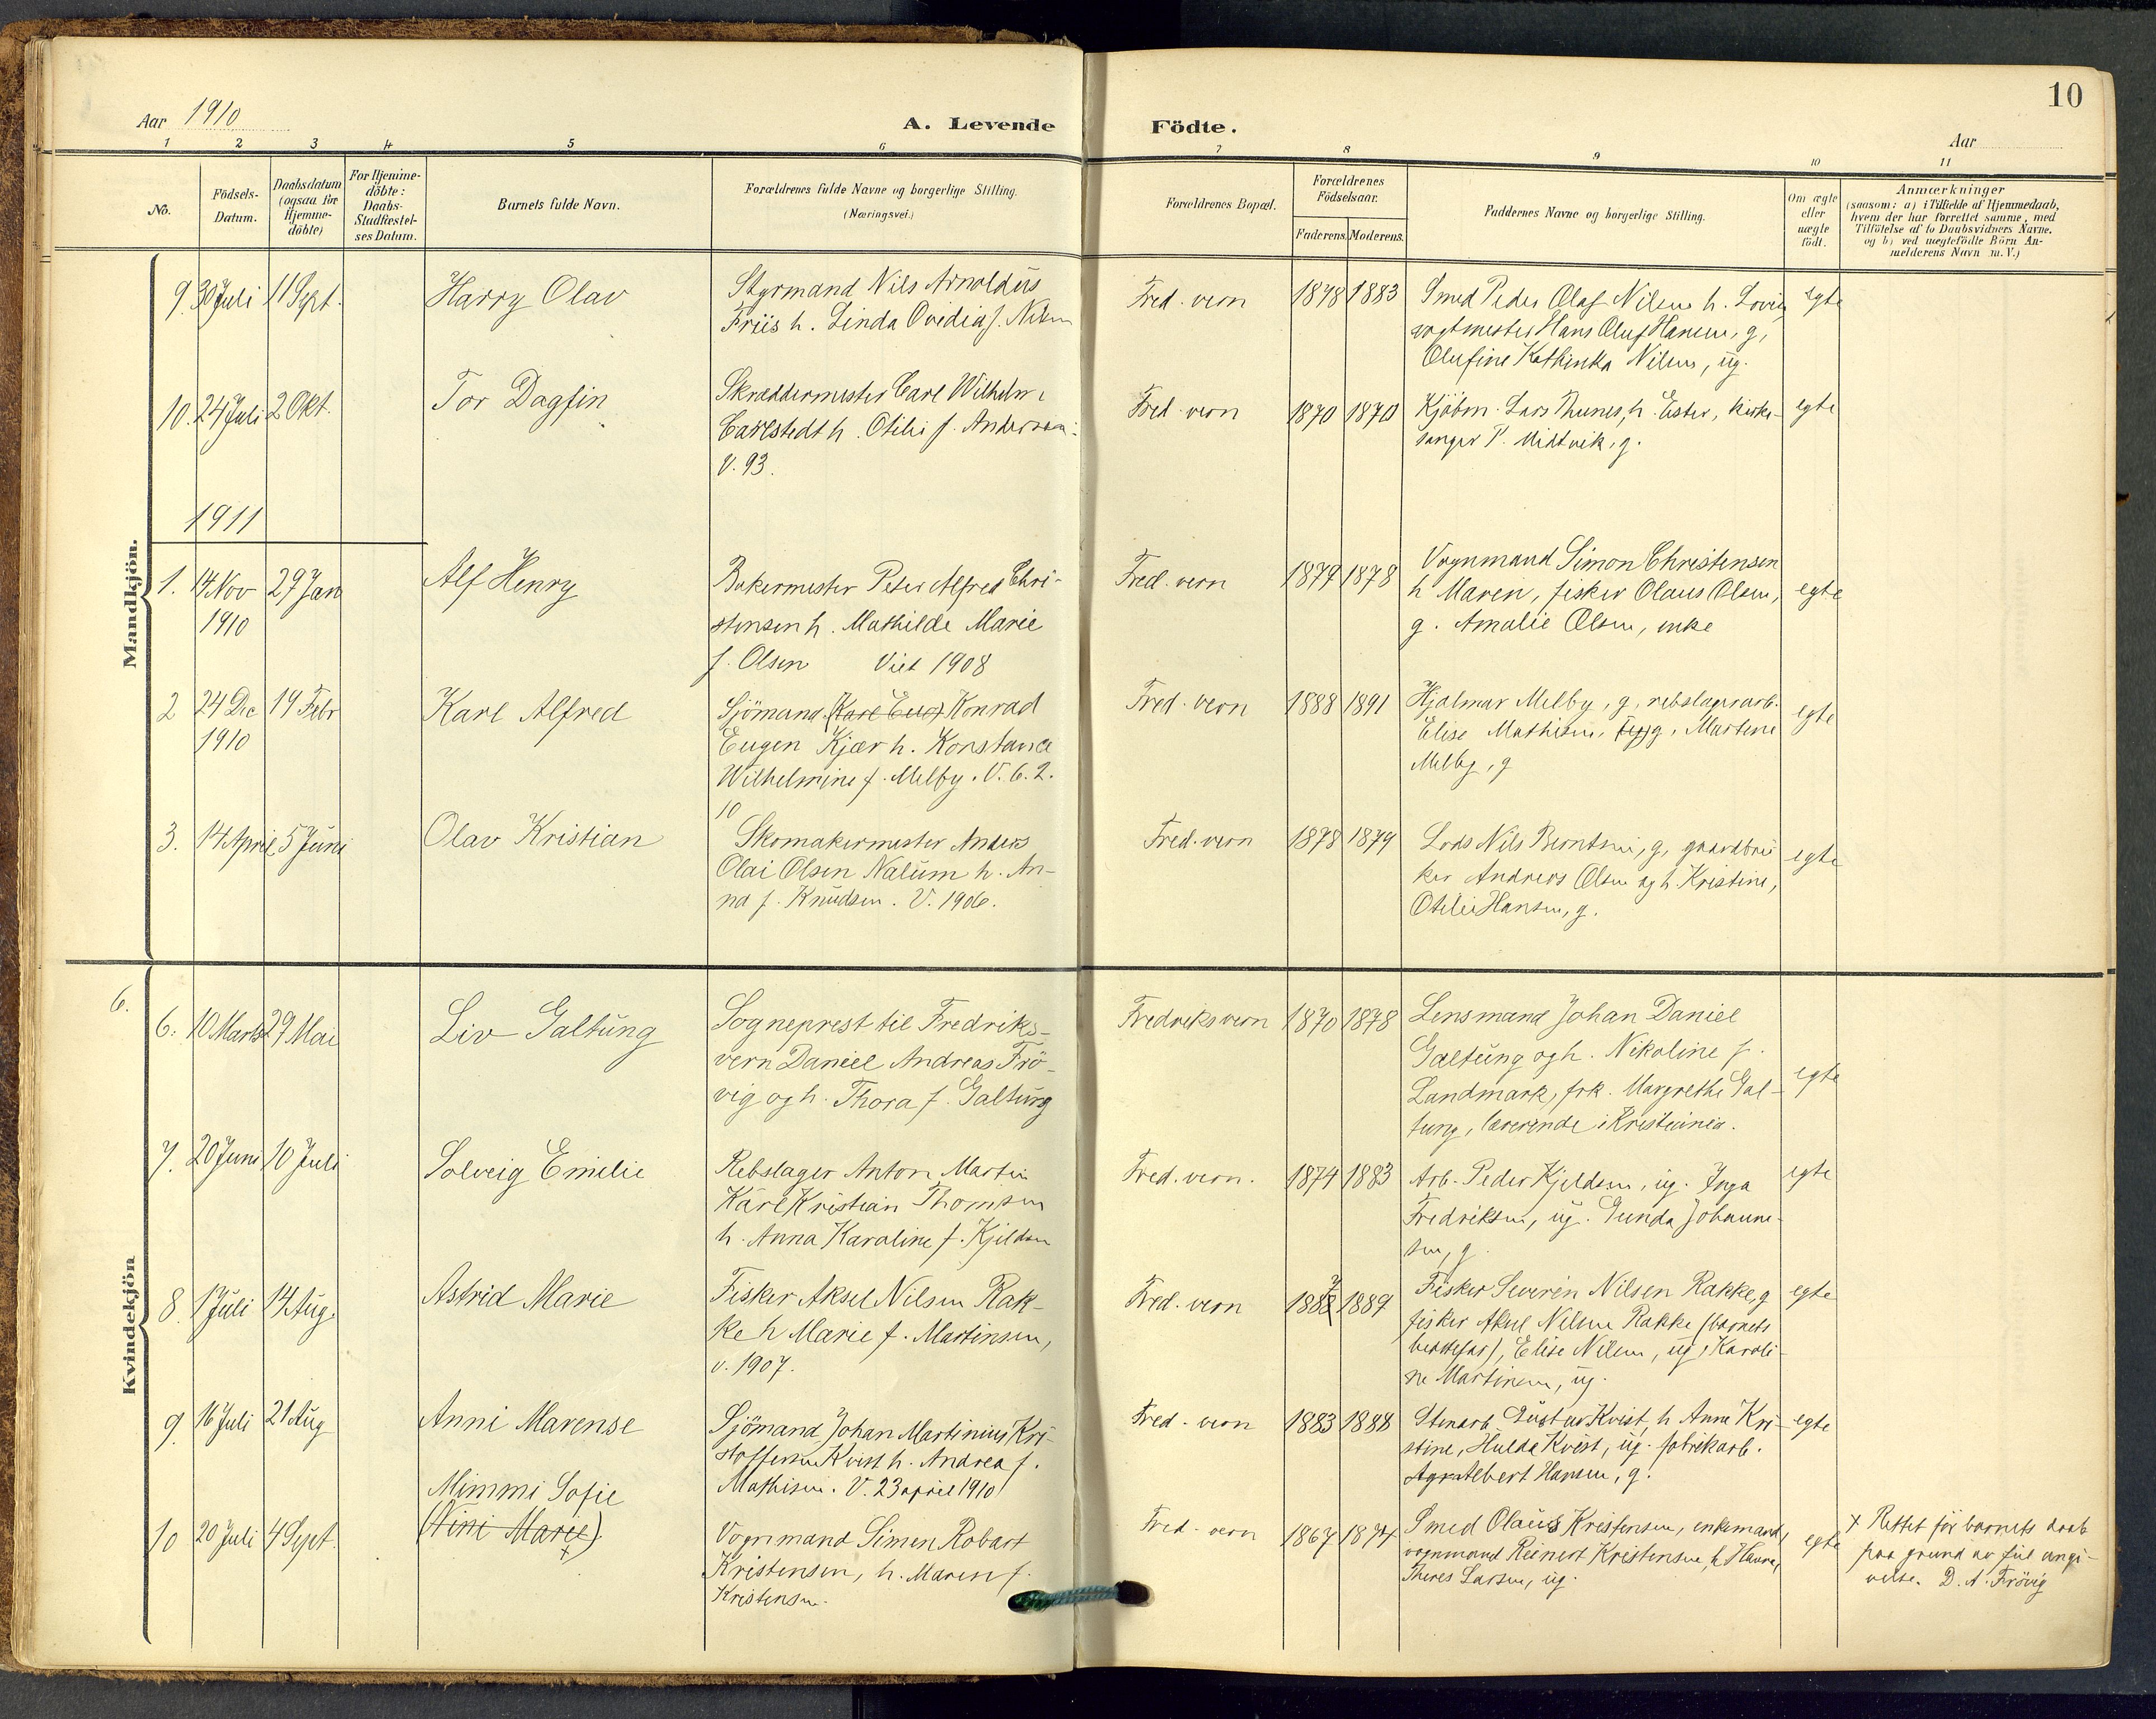 10
Aar 1910
A. Levende Födte.
Aar
1 2 3 4 5 6 7 8 9 10 11
No.
Födsels-
Datum.
Daabsdatum
(ogsaa for
Hjemme-
döbte)
For Hjemme-
döbte:
Daabs-
Stadfæstel-
ses Datum.
Barnets fulde Navn.
Forældrenes fulde Navne og borgerlige Stilling.
(Næringsvei.)
Forældrenes Bopæl.
Forældrenes
Födselsaar.
Faderens. Moderens.
Faddernes Navne og borgerlige Stilling.
Om ægte
eller
uægte
født.
Anmærkninger
(saasom: a) i Tilfælde af Hjemmedaab,
hvem der har forrettet samme, med
Tilföielse af to Daabsvidners Navne.
og b) ved uægtefödte Börn An-
melderens Navn m.V.)
Mandkjön.
9. 30 Juli 11 Sept.
Harry Olav
Styrmand Nils Arnoldus
Friis h. Linda Ovidia f. Nilsen
Fred. vern
1878 1883
Smed Peder Olaf Nilsen h. Lovis
vogtmester Hans Oluf Hansen, g,
Olufine Kathinka Nilsen, ug.
egte
10. 24 Juli 2 Okt.
Tor Dagfin
Skræddermester Carl Wilhelm
Carlstedt h. Otilie f. Andersen
V. 93.
Fred. vern
1870 1870
Kjöbm. Lars Thunes, h. Ester, kirke-
sanger P. Midtvik, g.
egte
1911
1. 14 Nov
1910
29 Jan
Alf Henry
Bakermester Peter Alfred Chri-
stensen h. Mathilde Marie
f. Olsen Viet 1908
Fred. vern
1879 1878
Vognmand Simon Christensen
h Maren, fisker Olaus Olsen,
g. Amalie Olsen, enke
egte
2 24 Dec
1910
19 Febr
Karl Alfred
Sjömand (Karl Eug) Konrad
Eugen Kjær h. Konstance
Wilhelmine f. Melby. V. 6. 2.
10
Fred. vern
1888 1891
Hjalmar Melby, g, rebslagerarb.
Elise Mathisen, g, Martine
Melby, g
egte
3. 14 April 5 Juni
Olav Kristian
Skomakermester Anders
Olai Olsen Nalum h. An-
na f. Knudsen. V. 1906.
Fred. vern
1878 1879
Lods Nils Berntsen, g, gaardbru
ker Andreas Olsen og h. Kristine,
Otilie Hansen, g.
egte
Kvindekjön
6.
6. 10 Marts 29 Mai
Liv Galtung
Sogneprest til Fredriks-
vern Daniel Andreas Frö-
vig og h. Thora f. Galtung
Fredriksvern
1870 1878
Lensmand Johan Daniel
Galtung og h. Nikoline f.
Landmark, frk. Margrethe Gal-
tung, lærerinde i Kristiania.
egte
7. 20 Juni 10 Juli
Solveig Emilie
Rebslager Anton Martin
Karl Kristian Thomsen
h. Anna Karoline f. Kjeldsen
Fred. vern.
1874 1883
Arb. Peder Kjeldsen, ug. Inga
Fredriksen, ug. Gunda Johanne-
sen, g
egte
8 1 Juli 14 Aug.
Astrid Marie
Fisker Aksel Nilsen Rak-
ke h Marie f. Martinsen,
v. 1907.
Fred. vern
1888 1889
Fisker Severin Nilsen Rakke, g
fisker Aksel Nilsen Rakke (barnets
bedstefar), Elise Nilsen, ug, Karoli-
ne Martinsen, ug.
egte
9. 16 Juli 21 Aug
Anni Marense
Sjömand Johan Martinius Kri-
stoffersen Kvist h. Andrea f.
Mathisen. V. 23 april 1910
Fred. vern
1883 1888
Stenarb. Gustav Kvist, h Anna Kri-
stine, Hulda Kvist, ug. fabrikarb.
Albert Hansen, g.
egte
10 20 Juli 4 Sept.
Mimmi Sofie
(Nini Marie).
x
Vognmand Simen Robart
Kristensen, h. Maren f.
Kristensen.
Fred. vern
1867 1874
Smed Olaus Kristensen, enkemand,
vognmand Reinert Kristensen, h Maren,
Theres Larsen, ug.
egte
x Rettet før barnets daab
paa grund av feil angi-
velse. D. A. Frövig